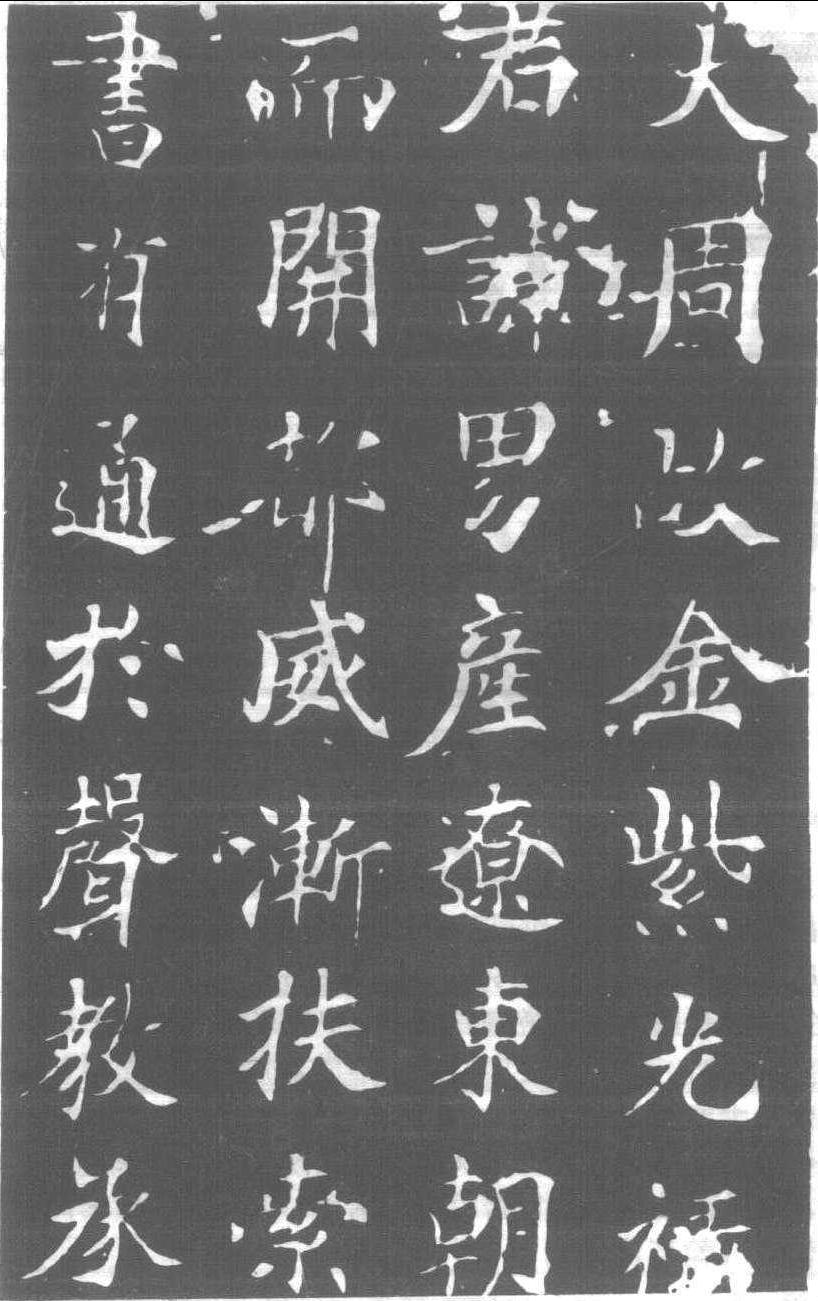 大周故金紫光祿
君諱男產遼東朝
而開都威漸扶索
書有通於聲教承